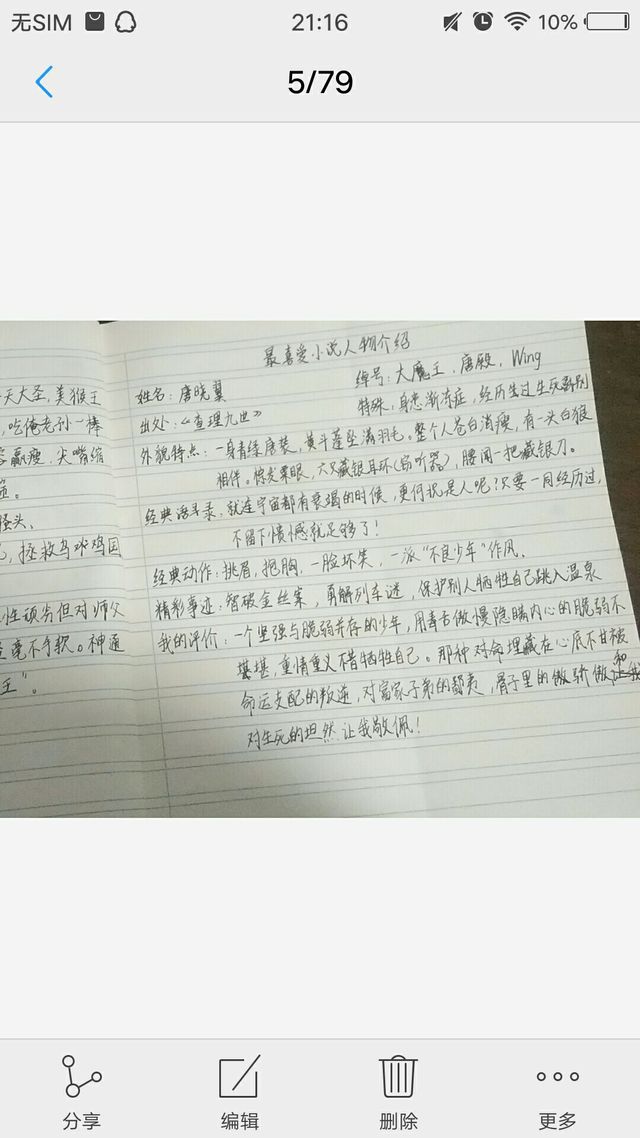 无SIM 21:16 10%
5/79
天大圣,美猴王
吃俺老孙一棒
瘦,尖嘴缩
拯救乌鸡国
性顽劣但对师父
毫不手软。神通
王"。
最喜爱小说人物介绍
姓名:唐晓翼 绰号:大魔王,唐殿,Wing
出处:《查理九世》 特殊:身患渐冻症,经历生过生死离别
外貌特点:一身青绿唐装,斗篷坠满羽毛。整个人苍白消瘦,有一头白狼
相伴。惊发栗眼,六只藏银耳环(窃听器),腰间一把藏银刀。
经典语录:就连宇宙都有衰竭的时候,更何况是人呢?只要一同经历过,
不留下愤憾就足够了!
经典动作:挑眉,抱胸,一脸坏笑,一派"不良少年"作风。
精彩事迹:智破金丝案,再解列车谜,保护别人牺牲自己跳入温泉
我的评价:一个坚强与脆弱并存的少年,用毒舌傲慢隐瞒内心的脆弱不
堪,重情重义不惜牺牲自己。那种对命埋藏在心底不甘被
命运支配的叛逆,对富家子弟的鄙夷,骨子里的傲骄傲和
对生死的坦然让我敬佩!
分享 编辑 删除 更多